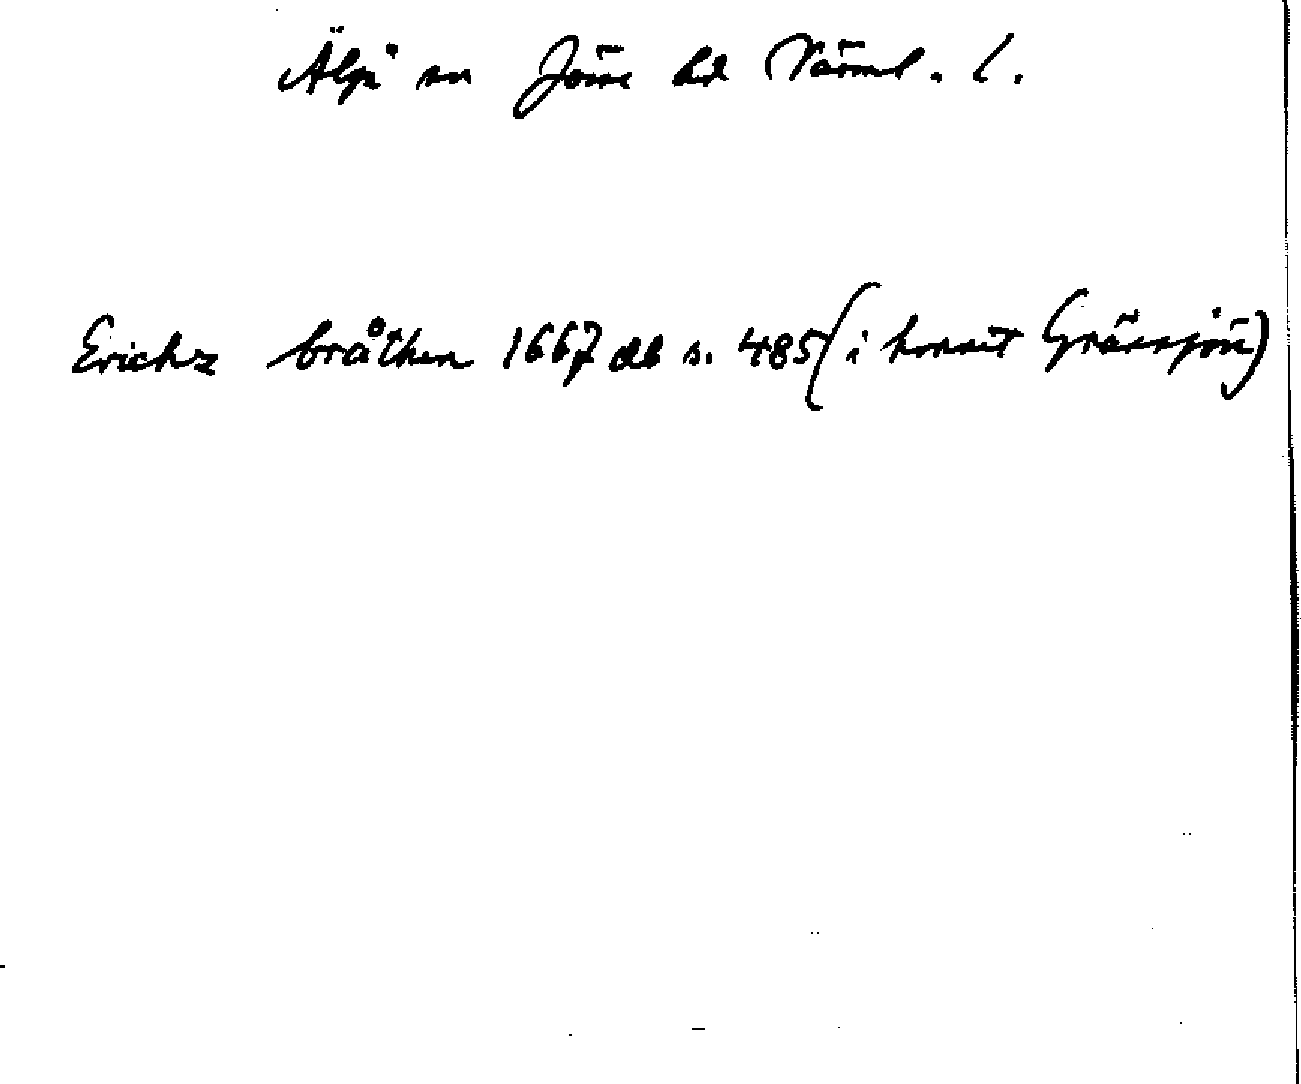 Älgå sn Jösse hd Värml. l.
Erichz bråthen 1667 db s. 485 (i kornet Grässjön)